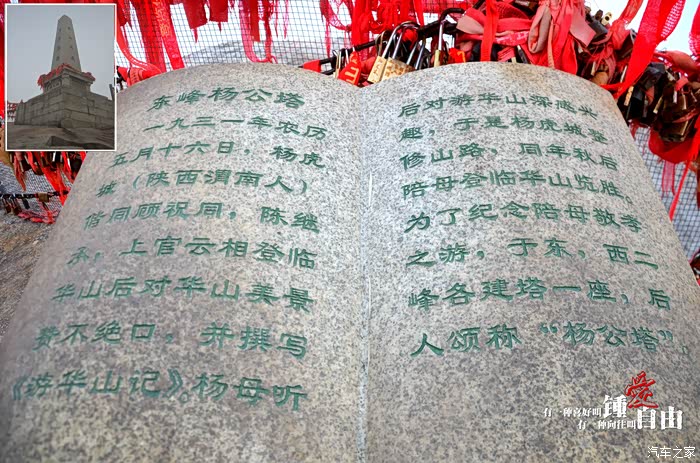 东峰杨公塔
一九三一年农历
五月十六日，杨虎
城（陕西渭南人）
偕同顾祝同，陈继
承，上官云相登临
华山后对华山美景
赞不绝口，并撰写
《游华山记》。杨母听
后对游华山深感兴
趣，于是杨虎城整
修山路，同年秋后
陪母登临华山览胜。
为了纪念陪母敬孝
之游，于东，西二
峰各建塔一座，后
人颂称“杨公塔”。
有一种喜好叫
鍾愛
有一种向往叫
自由
汽车之家